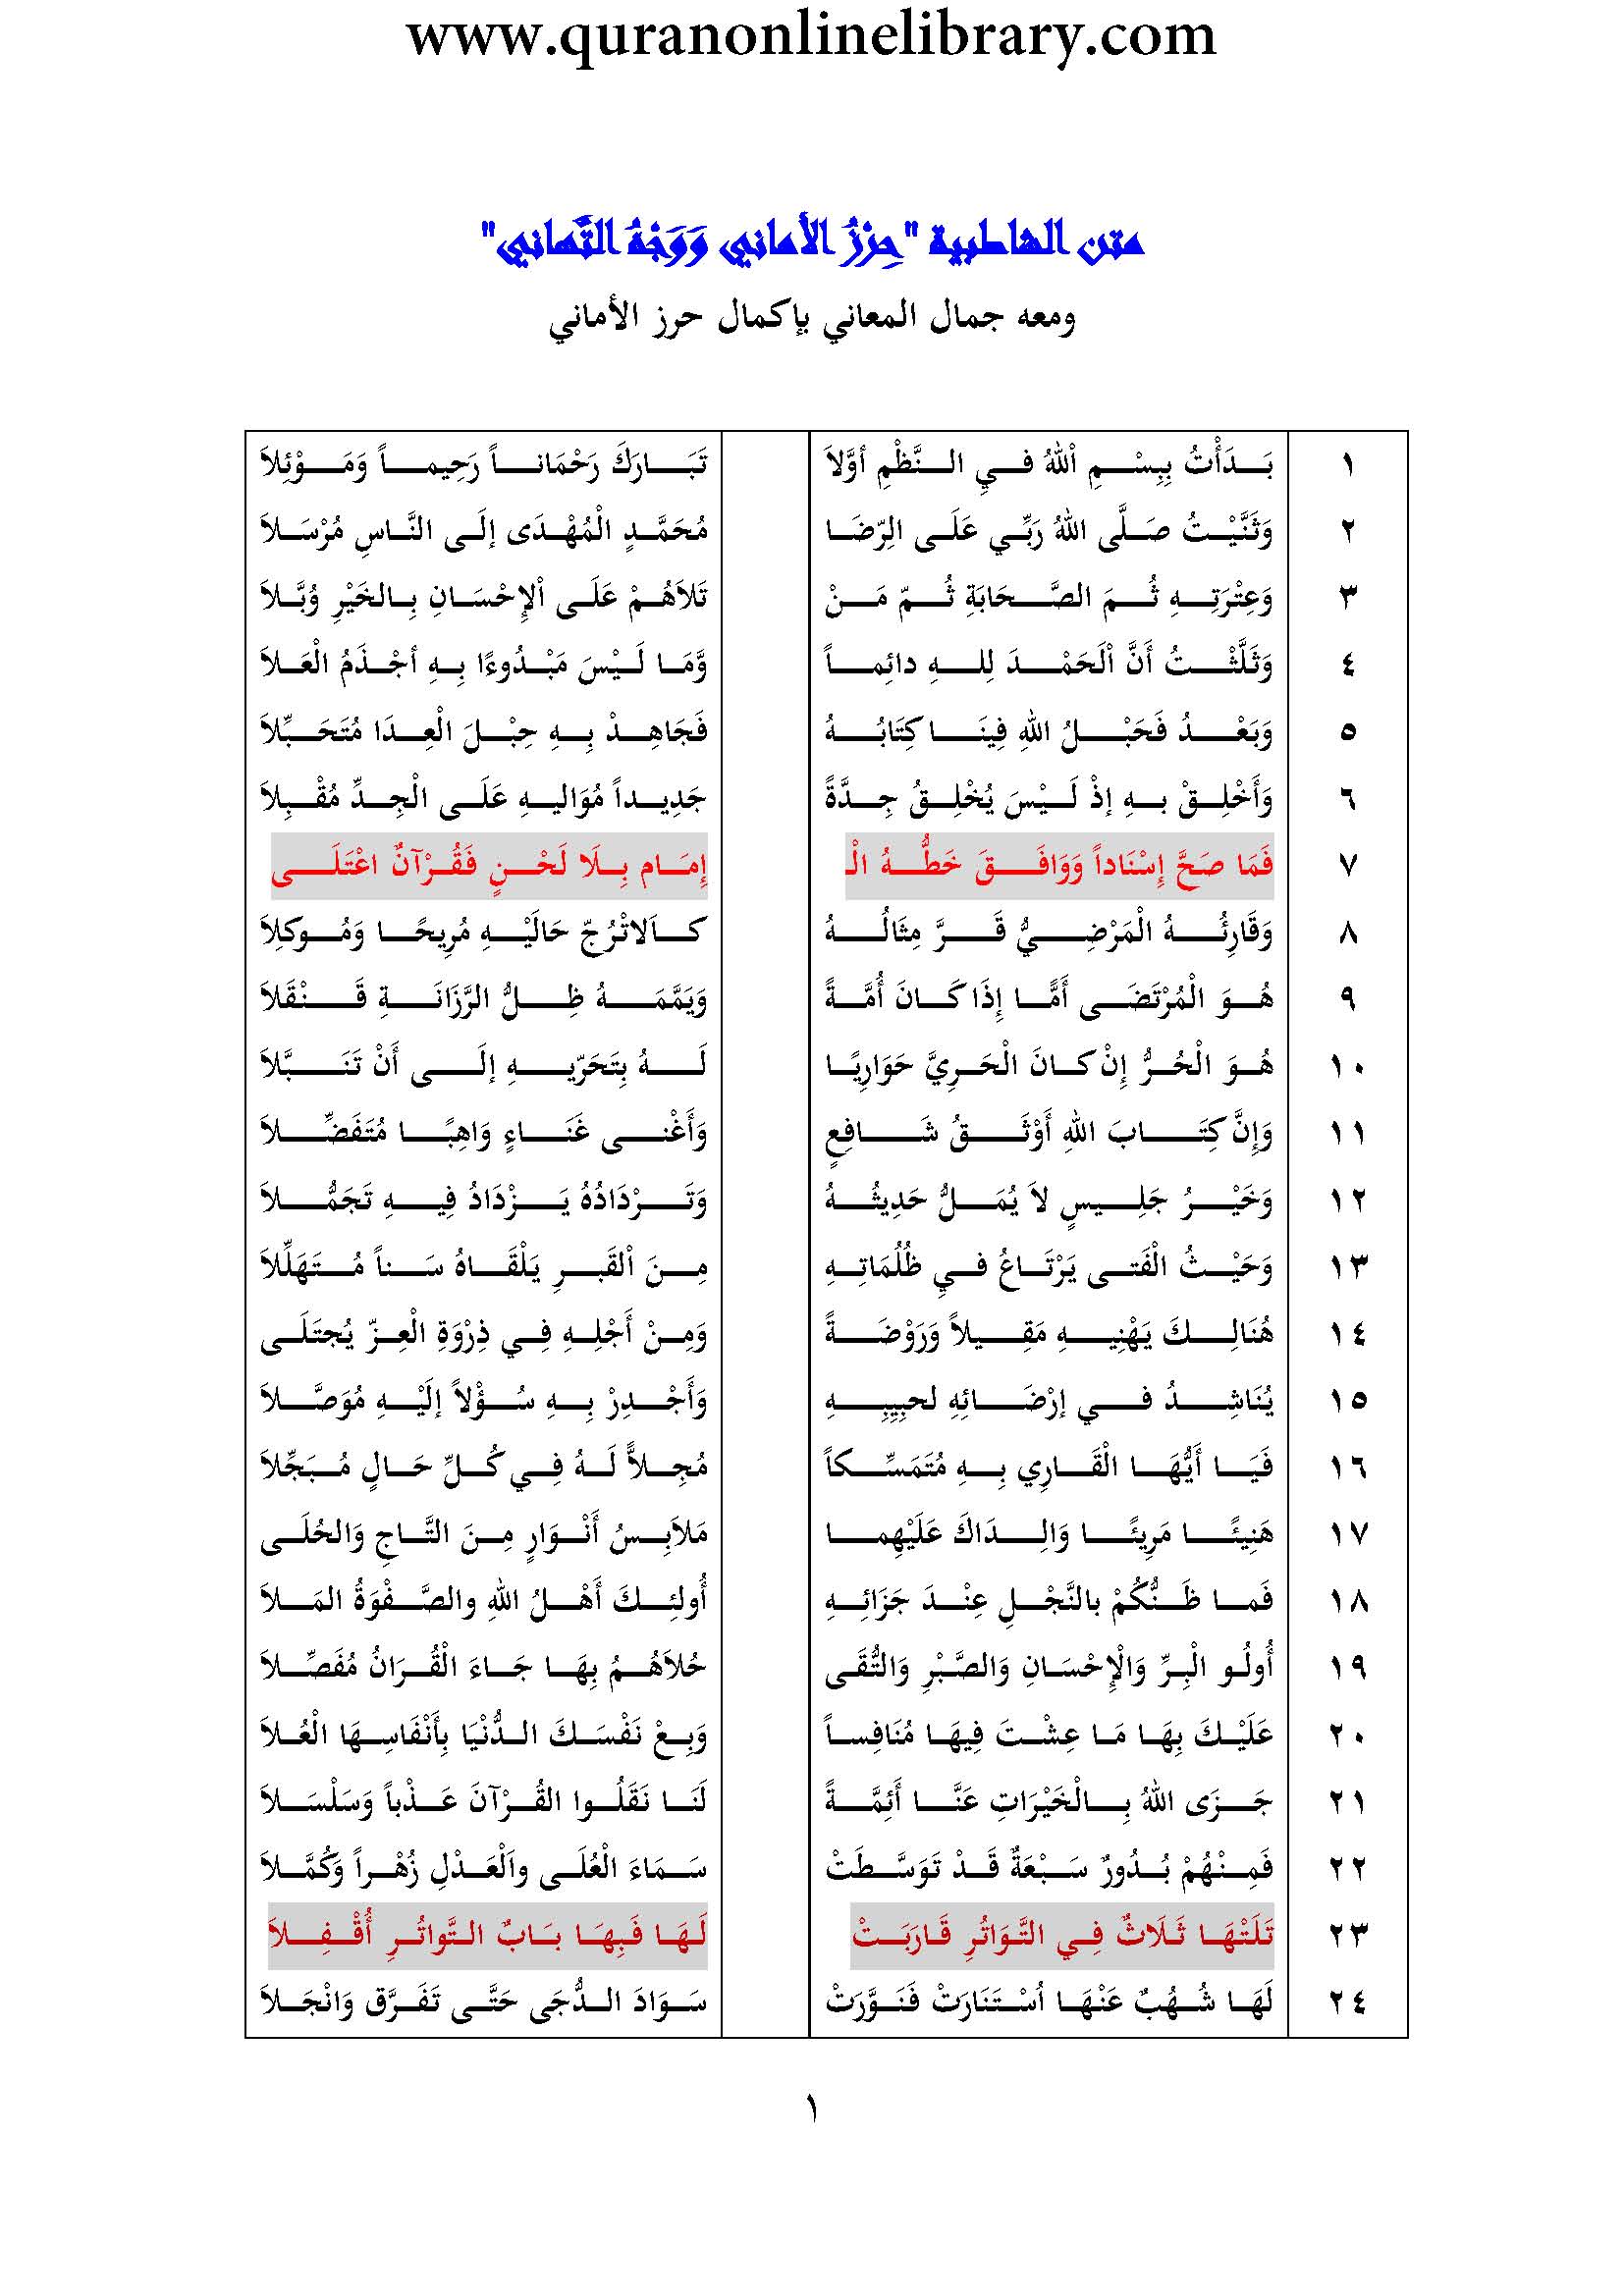 www.quranonlinelibrary.com
متن الشاطبية "حِرْزُ الأماني وَوَجْهُ التَّهاني"
ومعه جمال المعاني بإكمال حرز الأماني
١ بَدَأْتُ بِبِسْمِ اْللهُ فيِ النَّظْمِ أوَّلاَ تَبَارَكَ رَحْمَاناً رَحِيماً وَمَوْئِلاَ
٢ وَثَنَّيْتُ صَلَّى اللهُ رَبِّي عَلَى الِرّضَا مُحَمَّدٍ الْمُهْدَى إلَى النَّاسِ مُرْسَلاَ
٣ وَعِتْرَتِهِ ثُمَ الصَّحَابَةِ ثُمّ مَنْ تَلاَهُمْ عَلَى اْلإِحْسَانِ بِالخَيْرِ وُبَّلاَ
٤ وَثَلَّثْتُ أَنَّ اْلَحَمْدَ لِلهِ دائِماً وَّمَا لَيْسَ مَبْدُوءًا بِهِ أجْذَمُ الْعَلاَ
٥ وَبَعْدُ فَحَبْلُ اللهِ فِينَا كِتَابُهُ فَجَاهِدْ بِهِ حِبْلَ الْعِدَا مُتَحَبِّلاَ
٦ وَأَخْلِقْ بهِ إذْ لَيْسَ يُخْلِقُ جِدَّةً جَدِيداً مُوَاليهِ عَلَى الْجِدِّ مُقْبِلاَ
٧ فَمَا صَحَّ إِسْنَاداً وَوَافَقَ خَطُّهُ الْـ إِمَام بِلَا لَحْنٍ فَقُرْآنٌ اعْتَلَى
٨ وَقَارِئُهُ الْمَرْضِيُّ قَرَّ مِثَالُهُ كاَلاتْرُجّ حَالَيْهِ مُرِيحًا وَمُوكلِاَ
٩ هُوَ الْمُرْتَضَى أَمًّا إِذَا كَانَ أُمَّةً وَيَمَّمَهُ ظِلُّ الرَّزَانَةِ قَنْقَلاَ
١٠ هُوَ الْحُرُّ إِنْ كانَ الْحَرِيَّ حَوَارِيًا لَهُ بِتَحَرّيهِ إلَى أَنْ تَنَبَّلاَ
١١ وَإِنَّ كِتَابَ اللهِ أَوْثَقُ شَافِعٍ وَأَغْنى غَنَاءٍ وَاهِبًا مُتَفَضِّلاَ
١٢ وَخَيْرُ جَلِيسٍ لاَ يُمَلُّ حَدِيثُهُ وَتَرْدَادُهُ يَزْدَادُ فِيهِ تَجَمُّلاَ
١٣ وَحَيْثُ الْفَتى يَرْتَاعُ فيِ ظُلُمَاتِهِ مِنَ اْلقَبرِ يَلْقَاهُ سَناً مُتَهَلِّلاَ
١٤ هُنَالِكَ يَهْنِيهِ مَقِيلاً وَرَوْضَةً وَمِنْ أَجْلِهِ فِي ذِرْوَةِ الْعِزّ يُجتَلَى
١٥ يُنَاشِدُ في إرْضَائِهِ لحبِيِبِهِ وَأَجْدِرْ بِهِ سُؤْلاً إلَيْهِ مُوَصَّلاَ
١٦ فَيَا أَيُّهَا الْقَارِي بِهِ مُتَمَسِّكاً مُجِلاًّ لَهُ فِي كُلِّ حَالٍ مُبَجِّلاَ
١٧ هَنِيئًا مَرِيئًا وَالِدَاكَ عَلَيْهِما مَلاَبِسُ أَنْوَارٍ مِنَ التَّاجِ وَالحُلَى
١٨ فَما ظَنُّكُمْ بالنَّجْلِ عِنْدَ جَزَائِهِ أُولئِكَ أَهْلُ اللهِ والصَّفْوَةُ المَلاَ
١٩ أُولُو الْبِرِّ وَالْإِحْسَانِ وَالصَّبْرِ وَالتُّقَى حُلاَهُمُ بِهَا جَاءَ الْقُرَانُ مُفَصِّلاَ
٢٠ عَلَيْكَ بِهَا مَا عِشْتَ فِيهَا مُنَافِساً وَبِعْ نَفْسَكَ الدُّنْيَا بِأَنْفَاسِهَا الْعُلاَ
٢١ جَزَى اللهُ بِالْخَيْرَاتِ عَنَّا أَئِمَّةً لَنَا نَقَلُوا القُرْآنَ عَذْباً وَسَلْسَلاَ
٢٢ فَمِنْهُمْ بُدُورٌ سَبْعَةٌ قَدْ تَوَسَّطَتْ سَمَاءَ الْعُلَى واَلْعَدْلِ زُهْراً وَكُمَّلاَ
٢٣ تَلَتْهَا ثَلَاثٌ فِي التَّوَاتُرِ قَارَبَتْ لَهَا فَبِهَا بَابٌ التَّواتُرِ أُقْفِلاَ
٢٤ لَهَا شُهُبٌ عَنْهَا اُسْتَنَارَتْ فَنَوَّرَتْ سَوَادَ الدُّجَى حَتَّى تَفَرَّق وَانْجَلاَ
١